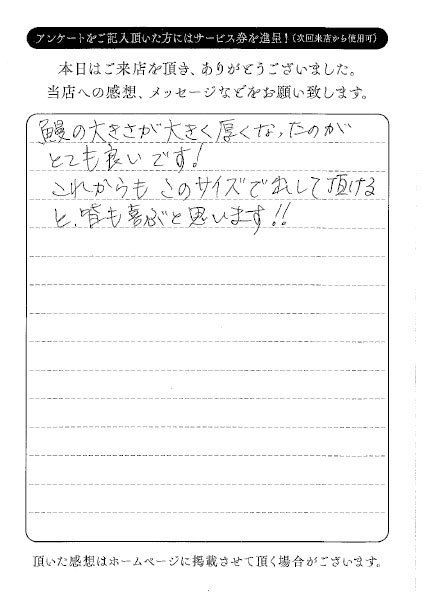 アンケートをご記入頂いた方にはサービス券を進呈！(次回来店から使用可)
本日はご来店を頂き、ありがとうございました。
当店への感想、メッセージなどをお願い致します。
鰻の大きさが大きく厚くなったのが
とても良いです!
これからも このサイズで出して頂ける
と、皆も喜ぶと思います!!
頂いた感想はホームページに掲載させて頂く場合がございます。